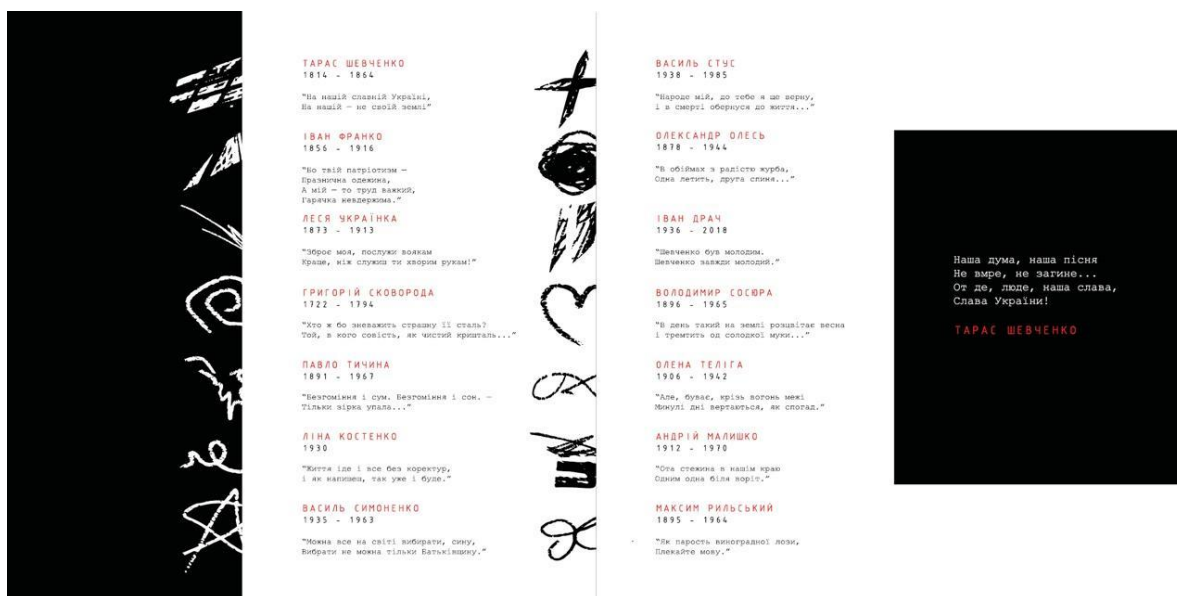 ТАРАС ШЕВЧЕНКО
1814 - 1864
"На нашій славній Україні,
На нашій — не своїй землі"
ІВАН ФРАНКО
1856 - 1916
"Бо твій патріотизм —
Празнична одежина,
А мій — то труд важкий,
Гарячка невдержима."
ЛЕСЯ УКРАЇНКА
1873 - 1913
"Зброє моя, послужи воякам
Краще, ніж служиш ти хворим рукам!"
ГРИГОРІЙ СКОВОРОДА
1722 - 1794
"Хто ж бо зневажить страшну її сталь?
Той, в кого совість, як чистий кришталь..."
ПАВЛО ТИЧИНА
1891 - 1967
"Безгоміння і сум. Безгоміння і сон. —
Тільки зірка упала..."
ЛІНА КОСТЕНКО
1930
"Життя іде і все без коректур,
і як напишеш, так уже і буде."
ВАСИЛЬ СИМОНЕНКО
1935 - 1963
"Можна все на світі вибирати, сину,
Вибрати не можна тільки Батьківщину."
ВАСИЛЬ СТУС
1938 - 1985
"Народе мій, до тебе я ще верну,
і в смерті обернуся до життя..."
ОЛЕКСАНДР ОЛЕСЬ
1878 - 1944
"В обіймах з радістю журба,
Одна летить, друга спиня..."
ІВАН ДРАЧ
1936 - 2018
"Шевченко був молодим.
Шевченко завжди молодий."
ВОЛОДИМИР СОСЮРА
1896 - 1965
"В день такий на землі розцвітає весна
і тремтить од солодкої муки..."
ОЛЕНА ТЕЛІГА
1906 - 1942
"Але, буває, крізь вогонь межі
Минулі дні вертаються, як спогад."
АНДРІЙ МАЛИШКО
1912 - 1970
"Ота стежина в нашім краю
Одним одна біля воріт."
МАКСИМ РИЛЬСЬКИЙ
1895 - 1964
"Як парость виноградної лози,
Плекайте мову."
Наша дума, наша пісня
Не вмре, не загине...
От де, люде, наша слава,
Слава України!
ТАРАС ШЕВЧЕНКО